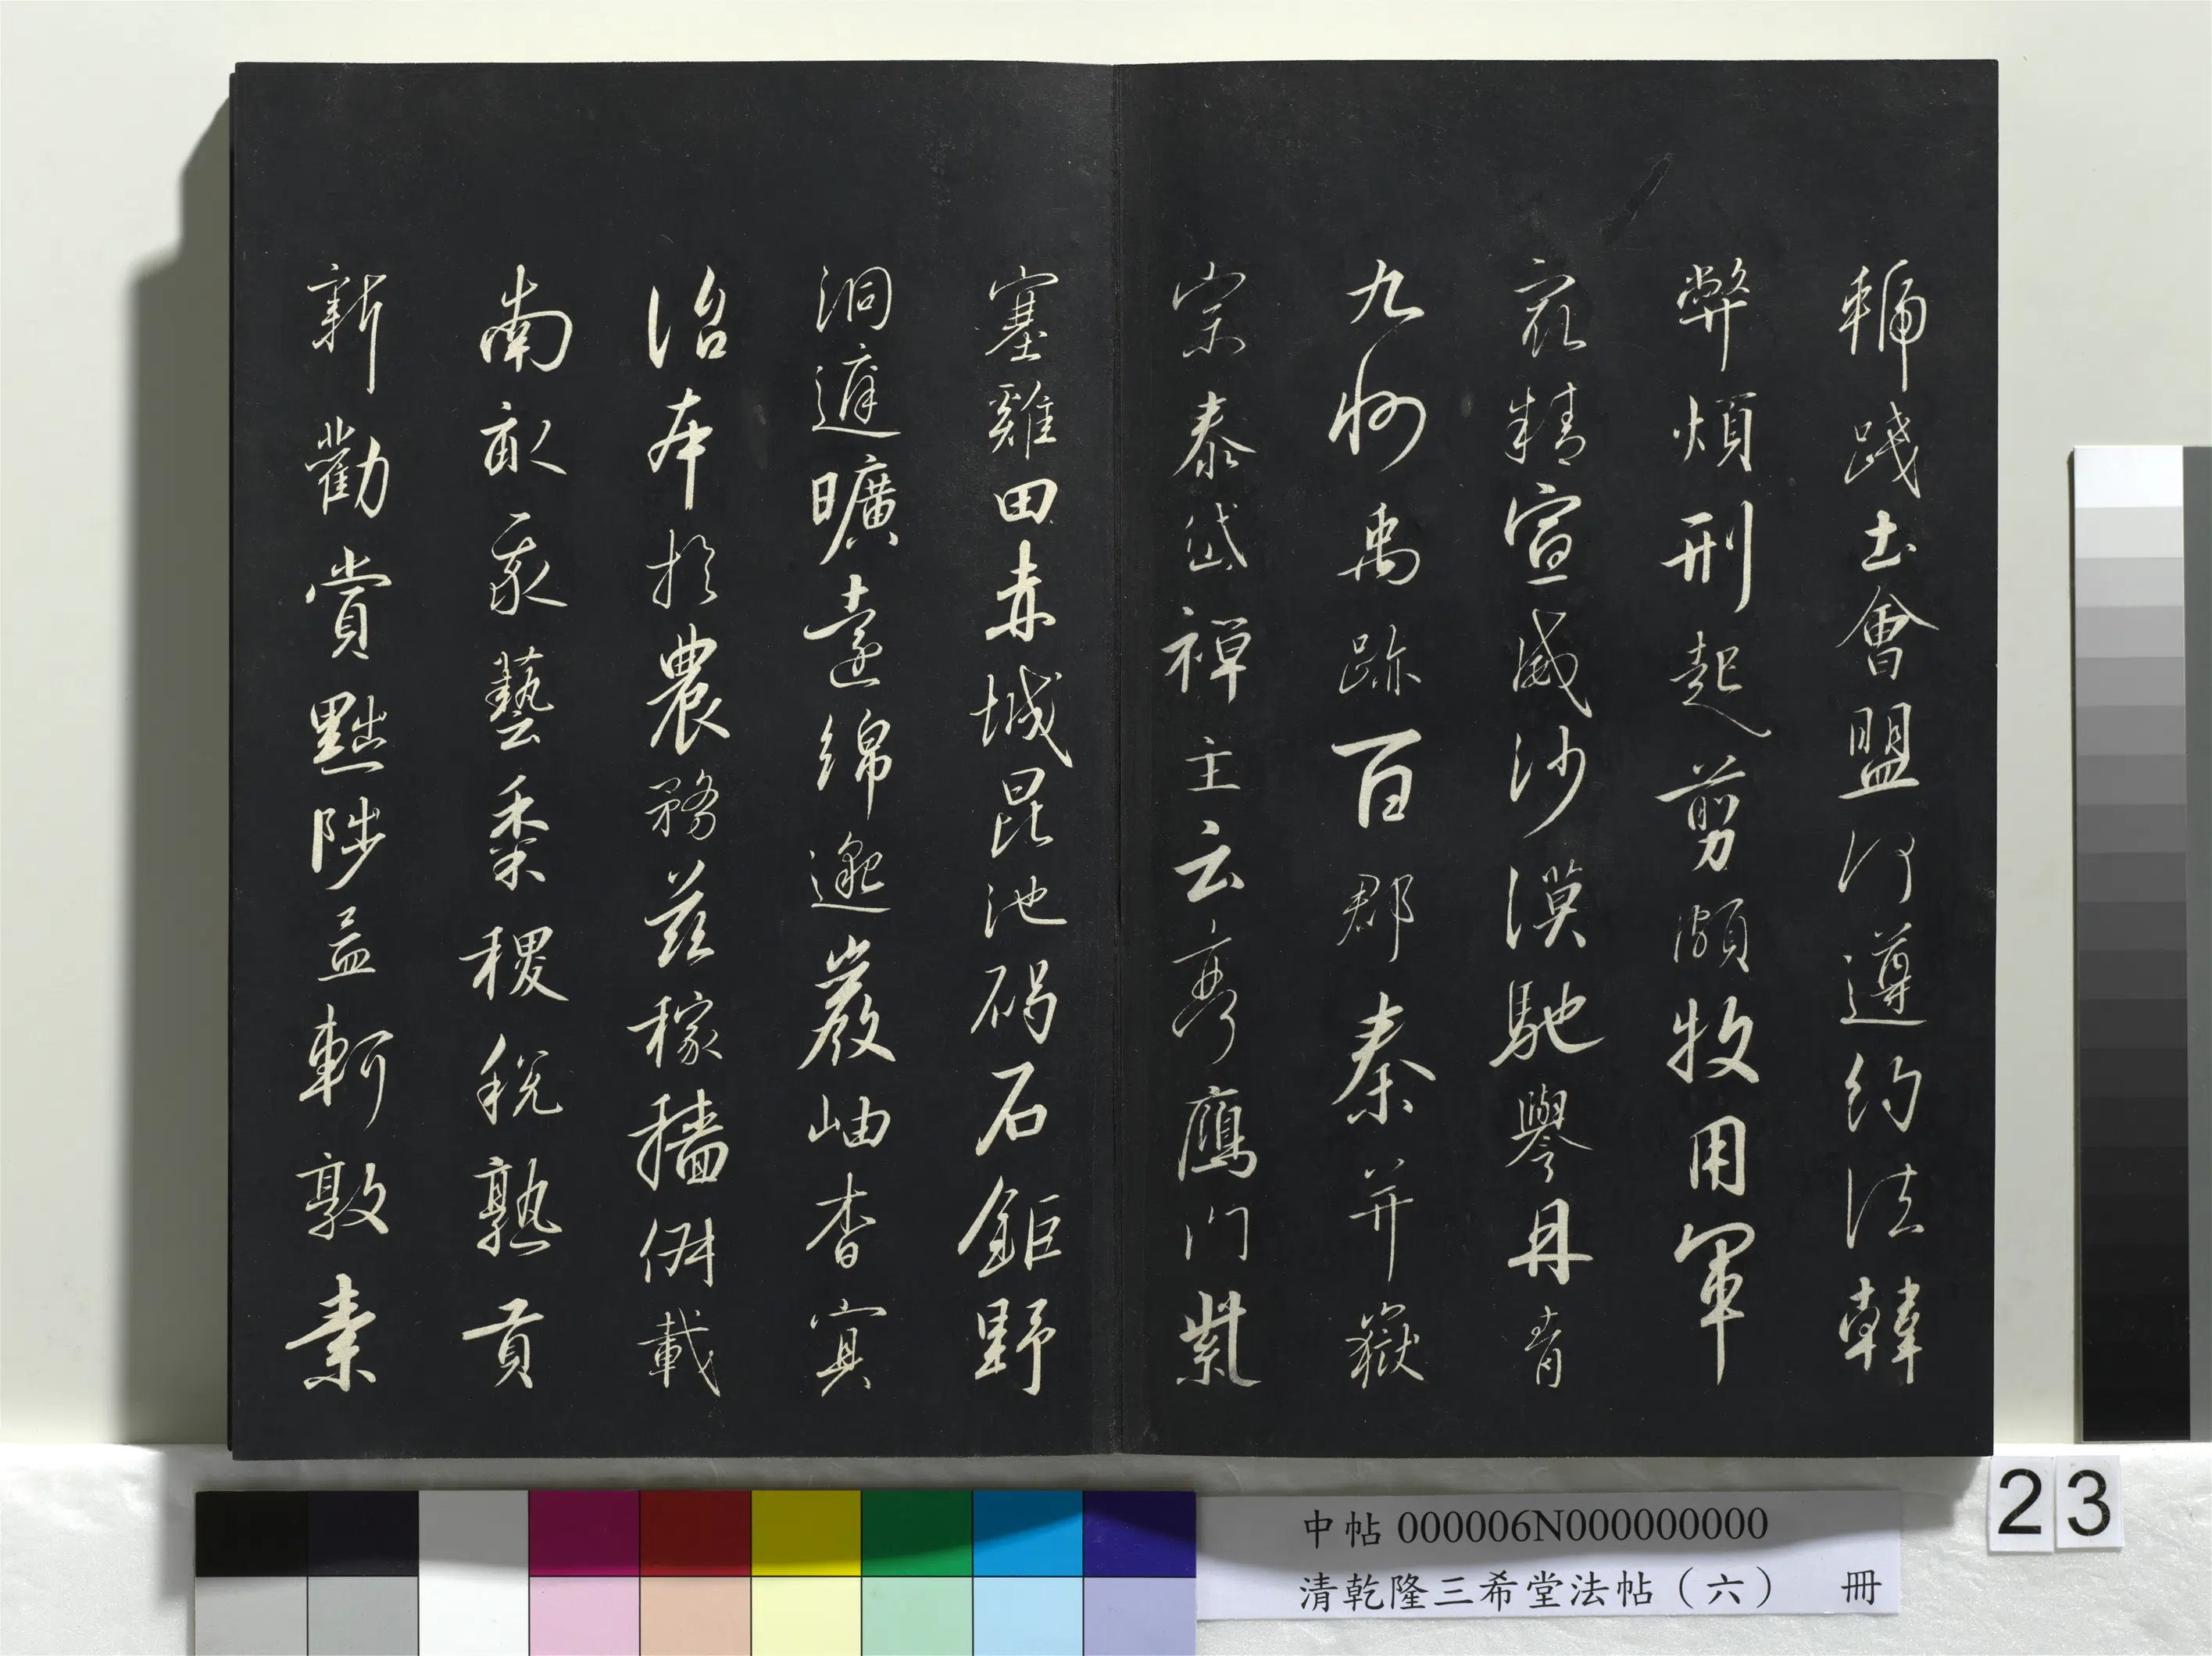 虢踐土會盟何遵約法韓
弊煩刑起剪頗牧用軍
最精宣威沙漠馳譽丹青
九州禹跡百郡秦并嶽
宗泰岱禪主云亭鴈門紫
塞雞田赤城昆池碣石鉅野
洞庭曠遠綿邈巖岫杳冥
治本於農務茲稼穡俶載
南畝我藝黍稷稅熟貢
新勸賞黜陟孟軻敦素
中帖 000006N000000000
清乾隆三希堂法帖（六） 冊
23